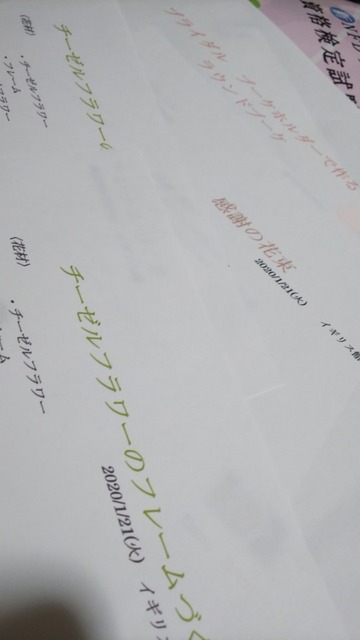 NF
資格検定試
ブーケホルダーで作る
ブライダル ラウンドブーケ
感謝の花束
2020/1/21(火)
イギリス
チーゼルフラワー
(花材)
・チーゼルフラワー
・フレーム
チーゼルフラワーのフレームづく
2020/1/21(火) イギリス
(花材)
・チーゼルフラワー